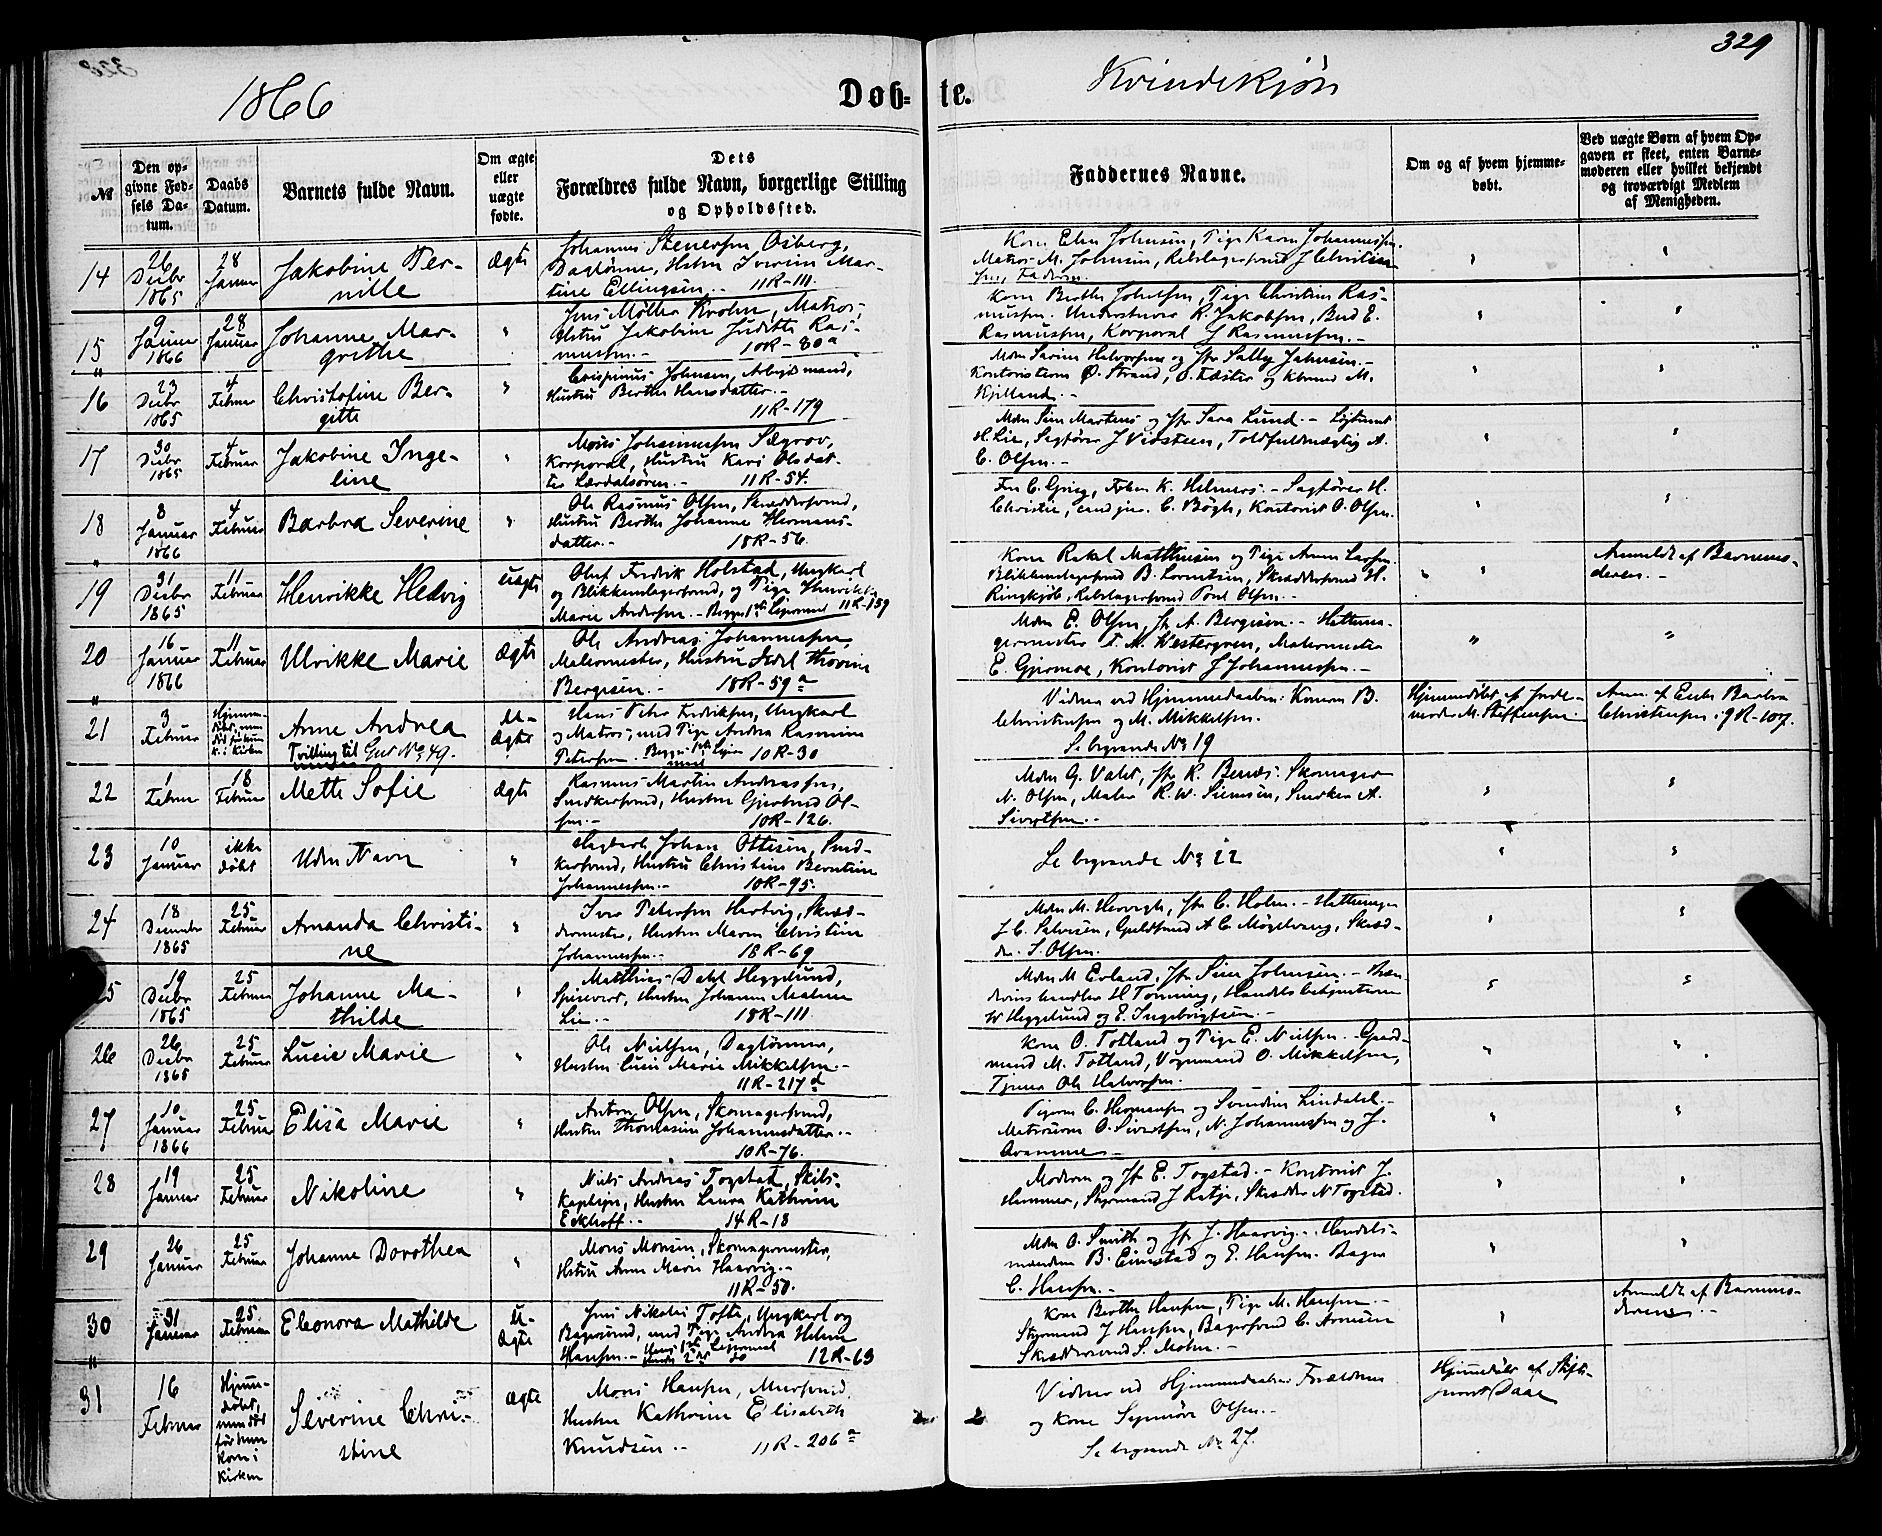 329
1866
Døb-
te.
Kvindekjøn
№
Den op-
givne Fød-
sels Da-
tum.
Daabs
Datum.
Barnets fulde Navn.
Om ægte
eller
uægte
fødte.
Dets
Forældres fulde Navn, borgerlige Stilling
og Opholdssted.
Faddernes Navne.
Om og af hvem hjemme-
døbt.
Ved uægte Børn af hvem Op-
gaven er skeet, enten Barne-
moderen eller hvilket bekjendt
og troværdigt Medlem
af Menigheden.
14
26
Decbr
1865
28
Januar
Jakobine Per-
nille
Ægte
Johannes Stenersen Osberg,
Daglønner, Hstru Iverine Mar-
tine Ellingsen.. 11R-111.
Kone Elen Johnsen, Pige Karen Johannessen.
Matros M. Johnsen, Rebslagersvend J Christen
sen, Faderen.
15
9
Januar
1866
28
Januar
Johanne Mar-
grethe
Jens Møller Krohn, Matros,
Hstru Jakobine Judithe Ras-
mussen.- 10R-80a
Kone Berthe Johnsen, Pige Christine Ras-
mussen. R. Jakobsen, Bud E.
Rasmussen, Korporal J Rasmussen.-
16
23
Decbr
1865
4
Februar
Christofine Ber-
gitte
Crispinus Johnsen, Arbejdsmand,
Hustru Berthe Hansdatter.-
11R-179
Mdm Sarine Halvorsen og Jfr Sally Johnsen.-
Kontoristerne O. Strand, O. Fæster og M.
Kjelland.-
17
30
Decbr
1865
4
Februar
Jakobine Inge-
line
Mons Johannessen Sægrov,
Korporal, Hustru Kari Olsdat-
ter Lærdalsøren.- 11R-54.
Mdm Sina Martens og Jfr Sara Lund.- Løjtnant
H. Lie, Sagfører J Vidsteen, Toldfuldmægtig A.
C. Olsen.-
18
8
Januar
1866
4
Februar
Barbra Severine
Ole Rasmus Olsen, Skræddersvend,
Hustru Berthe Johanne Hermans-
datter.- 18R-56.
Fru C. Grieg, Frøken K. Helmers.- Sagfører H.
Christie, cand jur. C. Bøgh, Kontorist O. Olsen.
19
31
Decbr
1865
11
Februar
Henrikke Hedvig
Uægte
Oluf Fredrik Holstad, Ungkarl
og Blikkenslagersvend, og Pige Henrikke
Marie Andersen.- Begges 1ste Lejermaal 11R-159
Kone Rakel Matthiesen og Pige Anne Larsen
Blikkenslagersvend B. Lorentsen, Skræddersvend H.
Ringkjøb, Rebslagersvend Poul Olsen.-
Anmeldt af Barnemo-
deren.-
20
16
Januar
1866
11
Februar
Ulrikke Marie
Ægte
Ole Andreas Johannessen,
Malermester, Hustru Thorine
Bergesen.- 18R-59a
Mdm E. Olsen, Jfr A. Bergesen.- Hattema-
germester T. M. Westergren, Malermester
E. Gjermoe, Kontorist J Johannessen.-
21
3
Februar
Hjemme-
døbt, men
død før hun
k. i Kirken
Anne Andrea
Tvilling til Gut No 49.
U-
ægte
Hans Peter Fredriksen, Ungkarl
og Matros, med Pige Andrea Rasmine
Petersen. Begges 1ste Lejer
maal 10R-30
Vidner ved Hjemmedaaben: Konerne B.
Christensen og M. Mikkelsen.
Se begravede No 19
Hjemmedøbt af Jorde-
moder M. Steffensen.
Anm. af Enke Barbra
Christensen i 9R-107.
22
1
Februar
18
Februar
Mette Sofie
Ægte
Rasmus Martin Andreassen,
Snedkersvend, Hustru Gjertrud Ol-
sen.- 10R-126.
Mdm G. Vales, Jfr K. Bentzs. Skomager
N. Olsen, Maler R. W. Siemsen, Snedker A.
Sivertsen.-
23
10
Januar
ikke
døbt
Uden Navn
Hagbart Johan Ottesen, Sned-
kersvend, Hustru Christine Berntine
Johannessen.- 10R-95.
Se begravede No 22
24
18
December
1865
25
Februar
Amanda Christi-
ne
Iver Petersen Hertvig, Skræd-
dermester, Hustru Maren Christine
Johannessen.- 18R-69
Mdm M. Hervigh, Jfr C. Holm.- Hattemager
J. C. Salvesen, Guldsmed A C Møgelvang, Skræd-
der S. Olsen.
25
19
Decbr
1865
25
Februar
Johanne Ma-
thilde
Matthias Dahl Heggelund,
Spisevert, Hustru Johanne Malene
Lie.- 18R-111.
Mdm M Evland, Jfr Sina Johnsen.- Bræn
devinshandler H Tonning, Handelsbetjentene
W Heggelund og E. Ingebrigtsen.-
26
26
Decbr
1865
25
Februar
Lucie Marie
Ole Nielsen, Daglønner,
Hustru Marie Mikkelsen.-
11R-217d
Kone O. Totland og Pige E. Nielsen. Gaard-
mand M. Totland, Vognmand O. Mikkelsen,
Tjener Ole Halvorsen.
27
10
Januar
1866
25
Februar
Elisa Marie
Anton Olsen, Skomagersvend,
Hustru Thomasine Johannesdatter.-
10R-76.
Pigerne C. Hermansen og Severine Lindahl.-
Matroserne O. Sivertsen, N. Johannessen og J.
28
19
Januar
25
Februar
Nikoline
Niels Andreas Togstad, Skibs-
kaptejn, Hustru Laura Kathrine
Eckhoff.- 14R-18
Moderen og Jfr E. Togstad.- Kontorist J.
Hammer, Styrmand J Ratje, Skrædder N Togstad.
29
26
Januar
25
Februar
Johanne Dorothea
Mons Monsen, Skomagermester,
Hstru Anne Marie Haarvig.-
11R-50.
Mdm O. Smith og Jfr J. Haarvig.- Handels-
mændene B. Eimstad og E. Hansen. Bager
C. Hansen.-
30
31
Januar
25
Februar
Eleonora Mathilde
U-
ægte
Jens Nikolai Tofte, Ungkarl og
Bagersvend, med Pige Andrea Helene
Hansen.- Hans 1ste Lejermaal
Hendes 2det do 12R-63
Kone Berthe Hansen, Pige M. Hansen.-
Styrmand J Hansen, Bagersvend C. Arnesen
Skræddersvend S. Mohn.-
Anmeldt af Barnemo-
deren.-
31
16
Februar
Hjem-
døbt,
men død
før hun
kom i
Kirken
Severine Chri-
stine
Ægte
Mons Hansen, Muursvend,
Hustru Kathrine Elisabeth
Knudsen.- 11R-206a
Vidner ved Hjemmedaaben: Forældrene
og Kone Sigmøre Olsen.-
Se begravede No 27.
Hjemdøbt af Stifts-
provst Daae